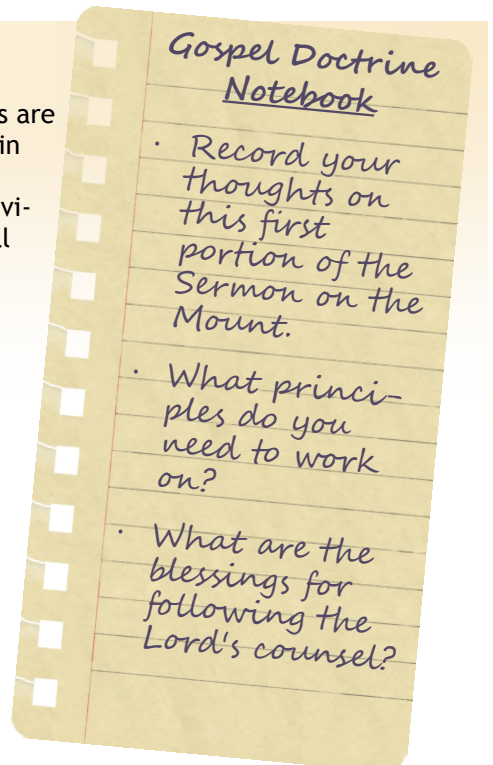 s are
in
vi-
ll
Gospel Doctrine
Notebook
· Record your
thoughts on
this first
portion of the
Sermon on the
Mount.
· What princi-
ples do you
need to work
on?
· What are the
blessings for
following the
Lord's counsel?